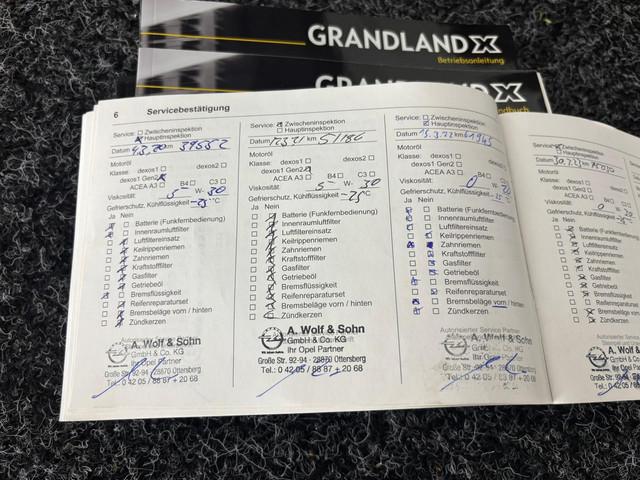 GRANDLAND X
Betriebsanleitung
6 Servicebestätigung
Service: Zwischeninspektion
Hauptinspektion
Datum 4.3.20 km 39552
Motoröl
Klasse: dexos1 dexos2
dexos1 Gen2
ACEA A3 B4 C3
Viskosität: 5 W- 30
Gefrierschutz, Kühlflüssigkeit -25 °C
Ja Nein
Batterie (Funkfernbedienung)
Innenraumluftfilter
Luftfiltereinsatz
Keilrippenriemen
Zahnriemen
Kraftstofffilter
Gasfilter
Getriebeöl
Bremsflüssigkeit
Reifenreparaturset
Bremsbeläge vorn / hinten
Zündkerzen
A. Wolf & Sohn
GmbH & Co. KG
Ihr Opel Partner
Große Str. 92-94 · 28870 Ottersberg
Tel.: 0 42 05 / 88 87 + 20 68
Service: Zwischeninspektion
Hauptinspektion
Datum km 51186
Motoröl
Klasse: dexos1 dexos2
dexos1 Gen2
ACEA A3 B4 C3
Viskosität: 5 - W- 30
Gefrierschutz, Kühlflüssigkeit -25 °C
Ja Nein
Batterie (Funkfernbedienung)
Innenraumluftfilter
Luftfiltereinsatz
Keilrippenriemen
Zahnriemen
Kraftstofffilter
Gasfilter
Getriebeöl
Bremsflüssigkeit
Reifenreparaturset
Bremsbeläge vorn / hinten
Zündkerzen
A. Wolf & Sohn
GmbH & Co. KG
Ihr Opel Partner
Große Str. 92-94 · 28870 Ottersberg
Tel.: 0 42 05 / 88 87 + 20 68
Service: Zwischeninspektion
Hauptinspektion
Datum 15.3.22 km 61945
Motoröl
Klasse: dexos1 dexos2
dexos1 Gen2
ACEA A3 B4 C3
Viskosität: 0 W- 20
Gefrierschutz, Kühlflüssigkeit
Ja Nein
Batterie (Funkfernbedienung)
Innenraumluftfilter
Luftfiltereinsatz
Keilrippenriemen
Zahnriemen
Kraftstofffilter
Gasfilter
Getriebeöl
Bremsflüssigkeit
Reifenreparaturset
Bremsbeläge vorn / hinten
Zündkerzen
Autorisierter Service Partner
A. Wolf & Sohn
GmbH & Co. KG
Große Str. 92-94 · 28870 Ottersberg
Tel.: 0 42 05 / 88 87 + 20 68
Service: Zwischeninspektion
Hauptinspektion
Datum
Motoröl
Klasse: dexos1
dexos1 Gen2
ACEA A3
Viskosität: 0
Gefrierschutz, Kühlflüssigkeit
Ja Nein
Batterie
Innenraumluftfilter
Luftfiltereinsatz
Keilrippenriemen
Zahnriemen
Kraftstofffilter
Gasfilter
Getriebeöl
Bremsflüssigkeit
Zündkerzen
A. Wolf